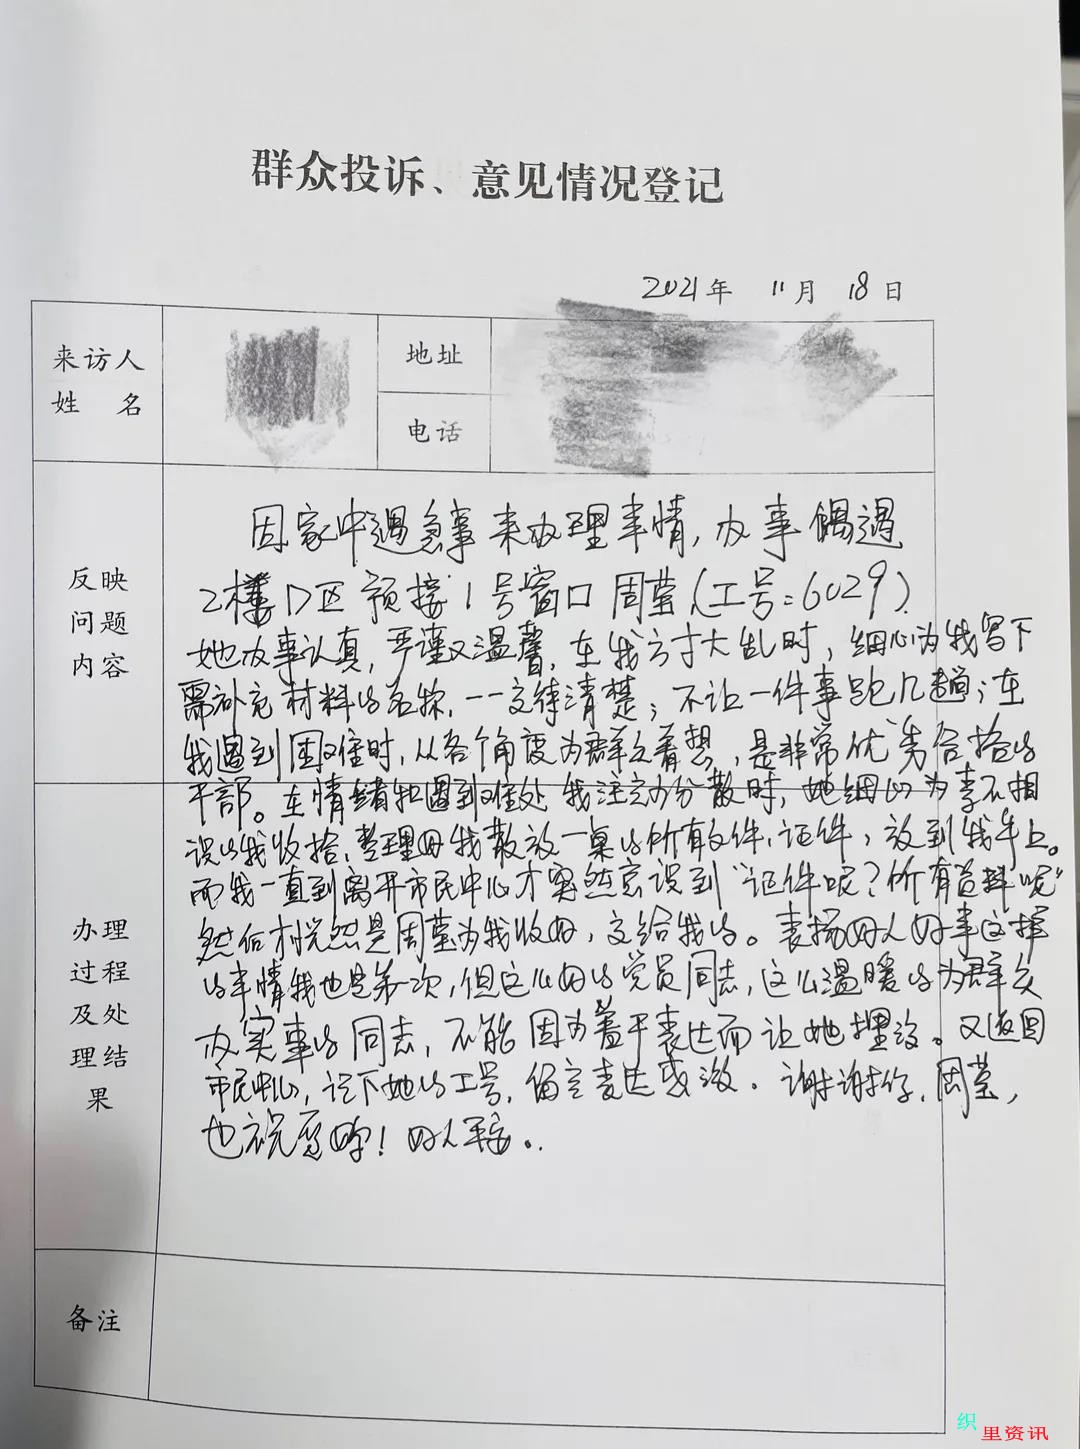 群众投诉、意见情况登记
2021年 11月 18日
来访人
姓 名
地址
电话
反映
问题
内容
因家中遇急事来办理事情,办事偶遇
2楼D区预接1号窗口周莹(工号:6029).
她办事认真,严谨又温馨,在我方寸大乱时,细心为我写下
需补充材料的名称,一一交待清楚;不让一件事跑几趟;在
我遇到困难时,从各个角度为群众着想,是非常优秀合格的
干部。在情绪和遇到难处我注意力分散时,她细心为素不相
识的我收拾、整理因我散放一桌的所有文件、证件,放到我手上。
而我一直到离开市民中心才突然意识到“证件呢?所有资料呢”
然后才恍然是周莹为我收好,交给我的。表扬好人好事这样
的事情我也是第一次,但这么好的党员同志,这么温暖的为群众
办实事的同志,不能因为羞于表达而让她埋没。又返回
市民中心,记下她的工号,留言表达感激.谢谢你,周莹,
也祝愿你!好人平安。
办理
过程
及处
理结
果
备注
织里资讯